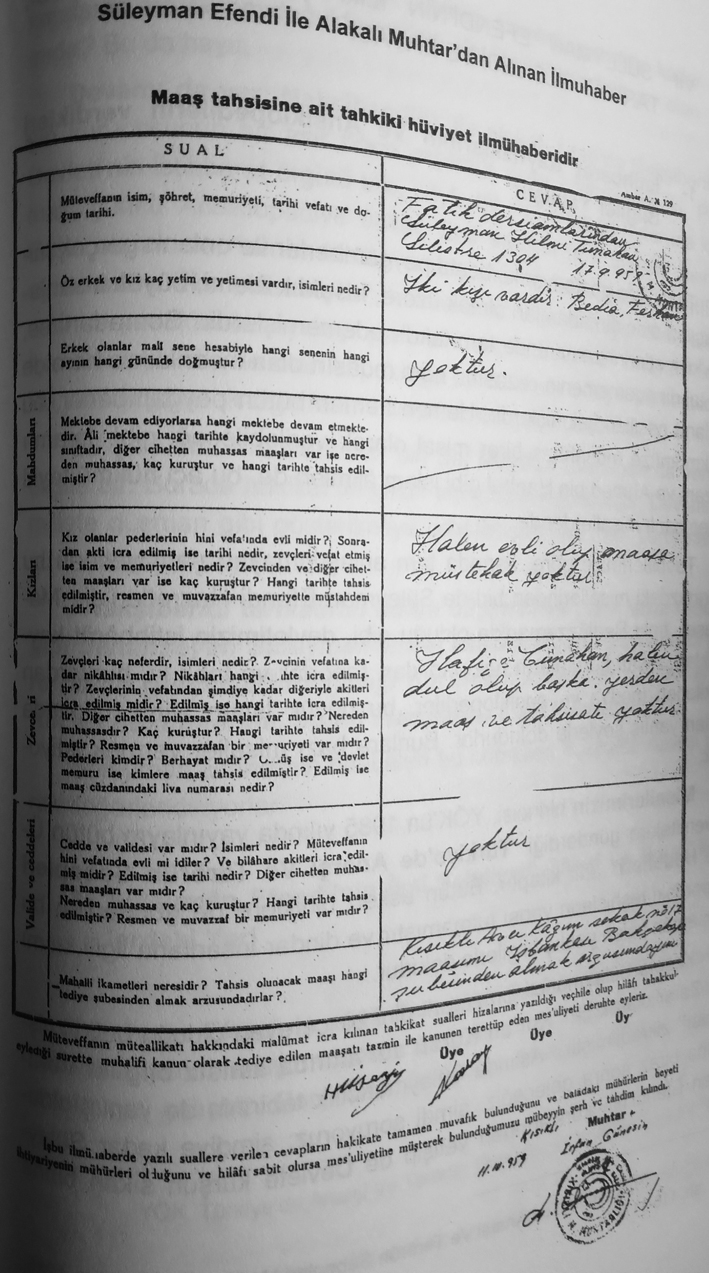 Süleyman Efendi İle Alakalı Muhtar'dan Alınan İlmuhaber
Maaş tahsisine ait tahkiki hüviyet ilmühaberidir
SUAL
CEVAP
Ambar A. N 129
Müteveffanın isim, şöhret, memuriyeti, tarihi vefatı ve do-
ğum tarihi.
Fatih dersiamlarından
Süleyman Hilmi Tunahan
Silistre 1304 17.9.959
Öz erkek ve kız kaç yetim ve yetimesi vardır, isimleri nedir?
İki kızı vardır. Bedia, Ferhan
Erkek olanlar mali sene hesabiyle hangi senenin hangi
ayının hangi gününde doğmuştur?
yoktur.
Mahdumları
Mektebe devam ediyorlarsa hangi mektebe devam etmekte-
dir. Âli mektebe hangi tarihte kaydolunmuştur ve hangi
sınıftadır, diğer cihetten muhassas maaşları var ise nere-
den muhassas, kaç kuruştur ve hangi tarihte tahsis edil-
miştir?
Kızları
Kız olanlar pederlerinin hini vefatında evli midir? Sonra-
dan akti icra edilmiş ise tarihi nedir, zevçleri vefat etmiş
ise isim ve memuriyetleri nedir? Zevcinden ve diğer cihet-
ten maaşları var ise kaç kuruştur? Hangi tarihte tahsis
edilmiştir, resmen ve muvazzafan memuriyette müstahdem
midir?
Halen evli olup maaşa
müstehak yoktur
Zevce ri
Zevçleri kaç neferdir, isimleri nedir? Zevcinin vefatına ka-
dar nikâhlısı mıdır? Nikâhları hangi ihte icra edilmiş-
tir? Zevçlerinin vefatından şimdiye kadar diğeriyle akitleri
icra edilmiş midir? Edilmiş ise hangi tarihte icra edilmiş-
tir. Diğer cihetten muhassas maaşları var mıdır? Nereden
muhassasdır? Kaç kuruştur? Hangi tarihte tahsis edil-
miştir? Resmen ve muvazzafan bir memuriyeti var mıdır?
Pederleri kimdir? Berhayat mıdır? üş ise ve devlet
memuru ise kimlere maaş tahsis edilmiştir? Edilmiş ise
maaş cüzdanındaki liva numarası nedir?
Tunahan, halen
dul olup başka yerden
maaş ve tahsisatı yoktur.
Valide ve ceddeleri
Cedde ve validesi var mıdır? İsimleri nedir? Müteveffanın
hini vefatında evli mi idiler? Ve bilâhare akitleri icra edil-
miş midir? Edilmiş ise tarihi nedir? Diğer cihetten muhas-
sas maaşları var mıdır?
Nereden muhassas ve kaç kuruştur? Hangi tarihte tahsis
edilmiştir? Resmen ve muvazzaf bir memuriyeti var mıdır?
yoktur
Mahalli ikametleri neresidir? Tahsis olunacak maaşı hangi
tediye şubesinden almak arzusundadırlar?
Kısıklı Avcı Kâzım sokak no 17
maaşımı
şubesinden almak arzusundayım
Müteveffanın müteallikatı hakkındaki malûmat icra kılınan tahkikat sualleri hizalarına yazıldığı veçhile olup hilâfı tahakkuk
eylediği surette muhalifi kanun olarak tediye edilen maaşatı tazmin ile kanunen terettüp eden mes'uliyeti deruhte eyleriz.
Üye Üye Üy
İşbu ilmühaberde yazılı suallere verilen cevapların hakikate tamamen muvafık bulunduğunu ve baladaki mühürlerin heyeti
ihtiyariyenin mühürleri olduğunu ve hilâfı sabit olursa mes'uliyetine müşterek bulunduğumuzu mübeyyin şerh ve tahdim kılındı.
Kısıklı Muhtar